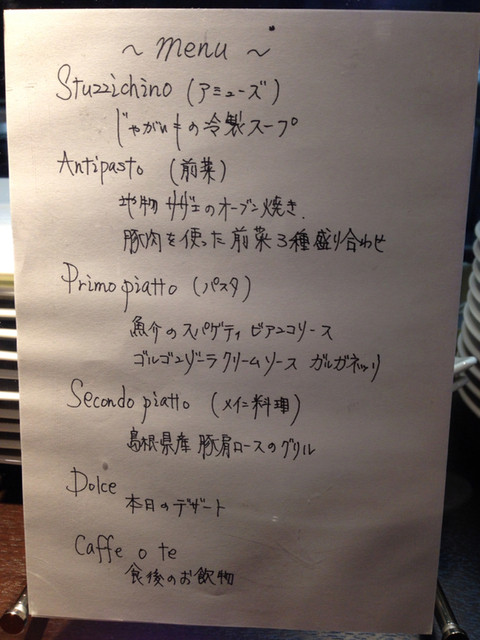 ~ menu ~
Stuzzichino (アミューズ)
じゃがいもの冷製スープ
Antipasto (前菜)
地物サザエのオーブン焼き.
豚肉を使った前菜3種盛り合わせ
Primo piatto (パスタ)
魚介のスパゲティ ビアンコソース
ゴルゴンゾーラクリームソース ガルガネッリ
Secondo piatto (メイン料理)
島根県産 豚肩ロースのグリル
Dolce
本日のデザート
Caffe o te
食後のお飲物